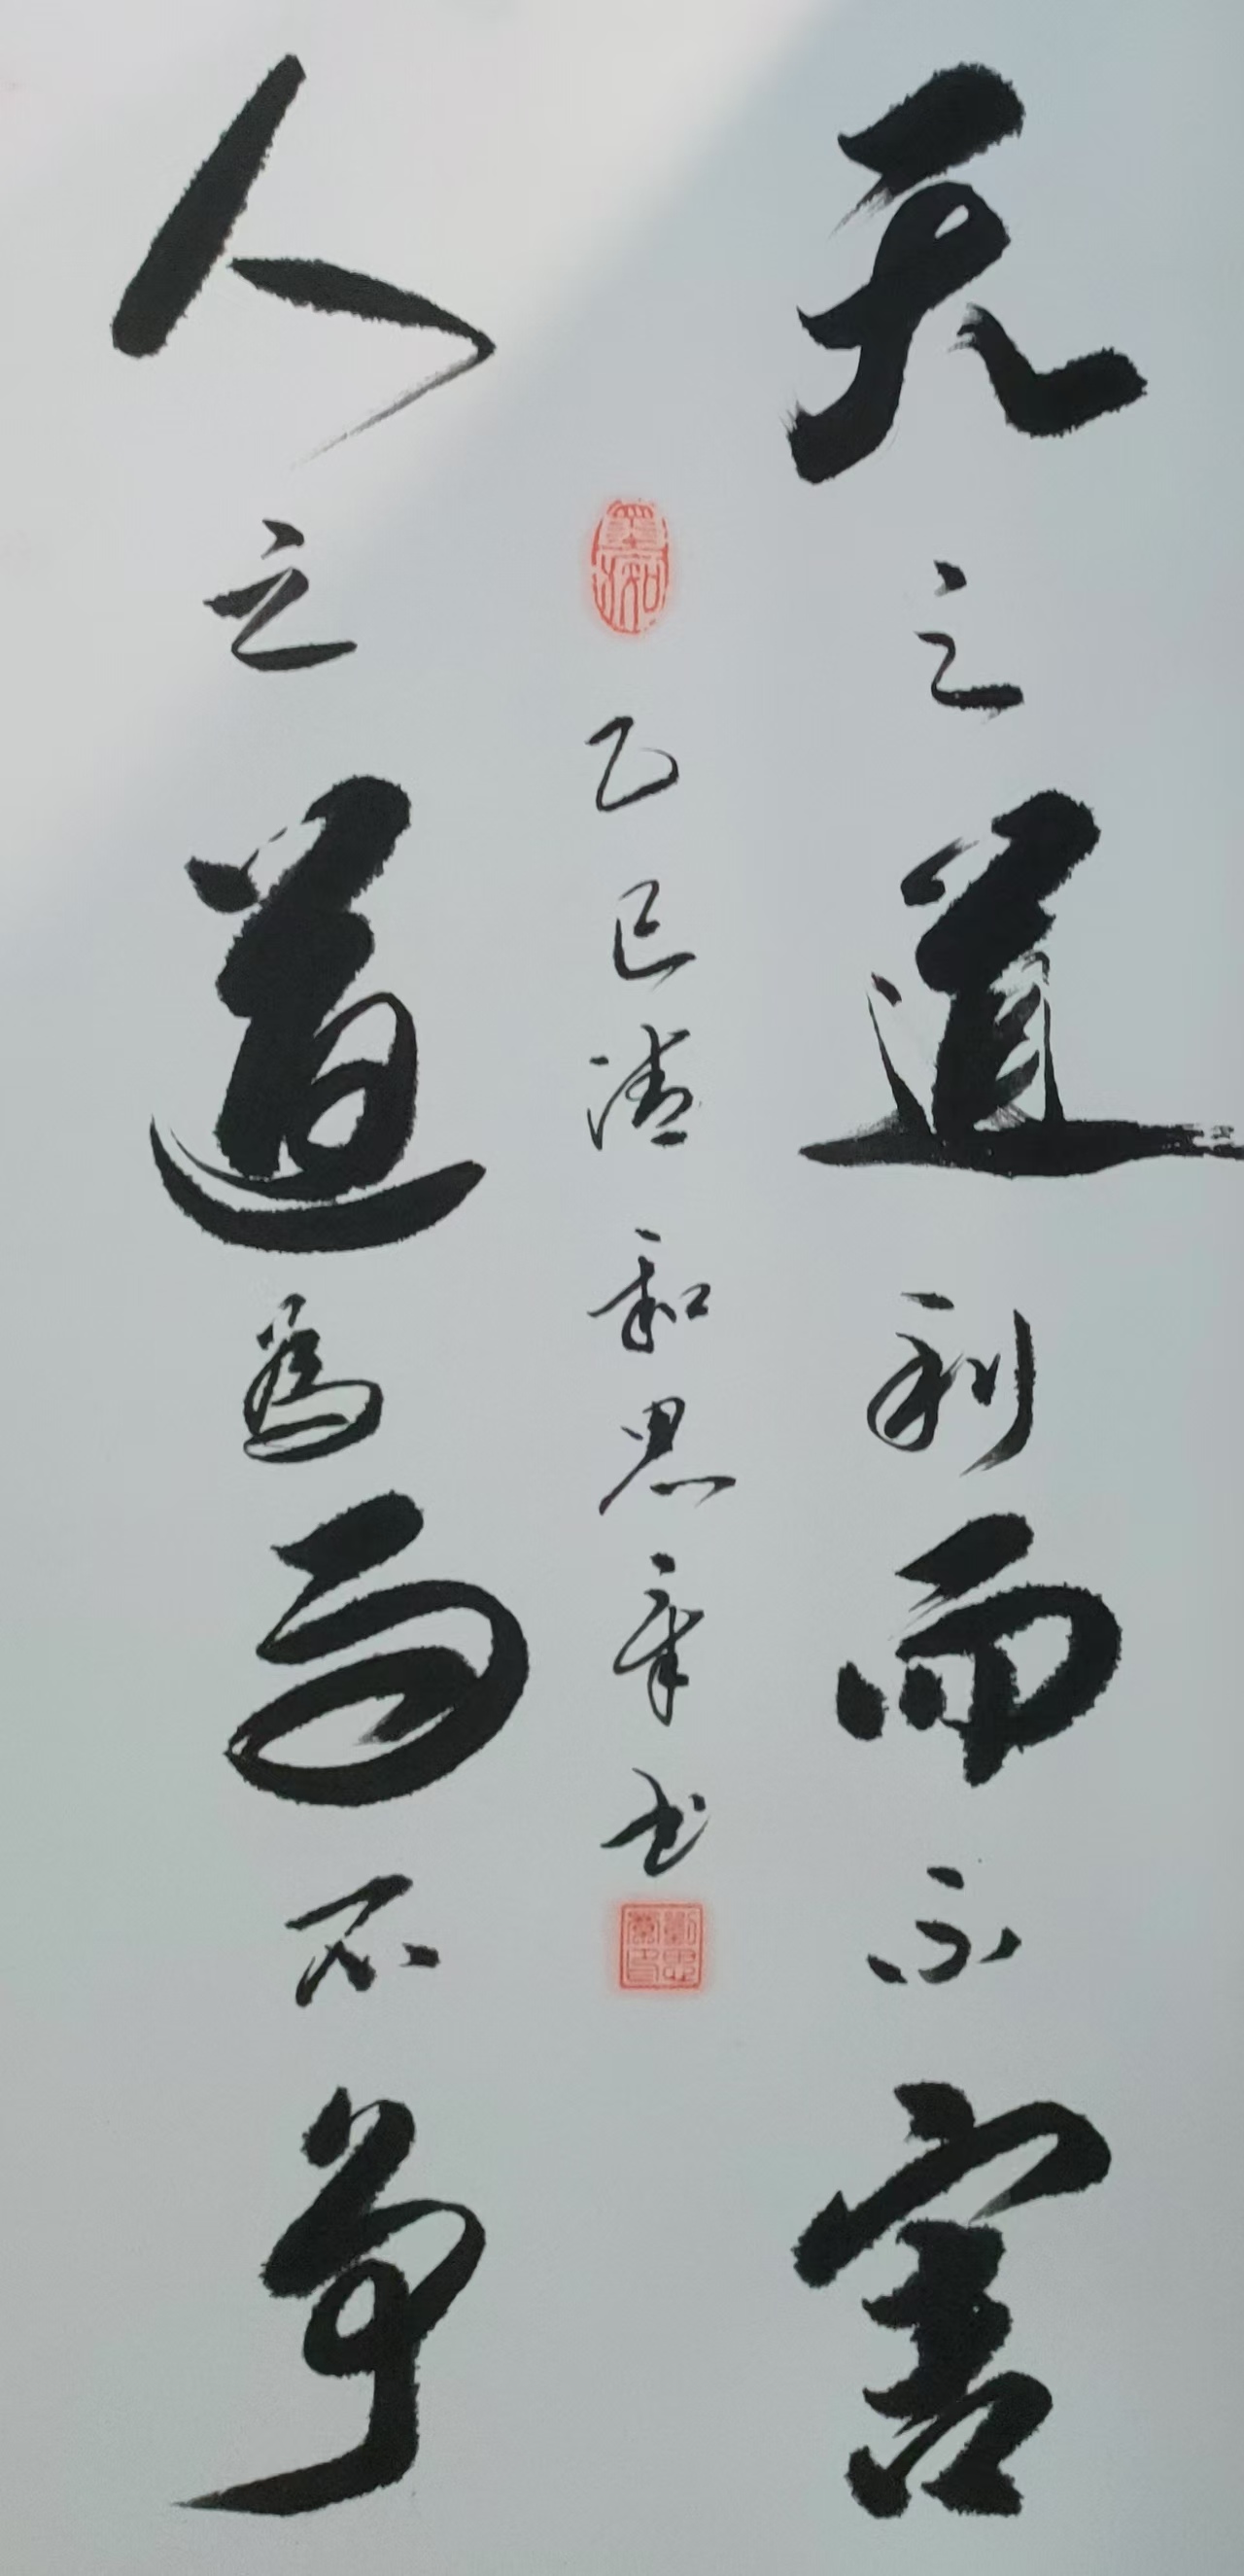 天之道利而不害
人之道為而不争
乙巳清和思章书